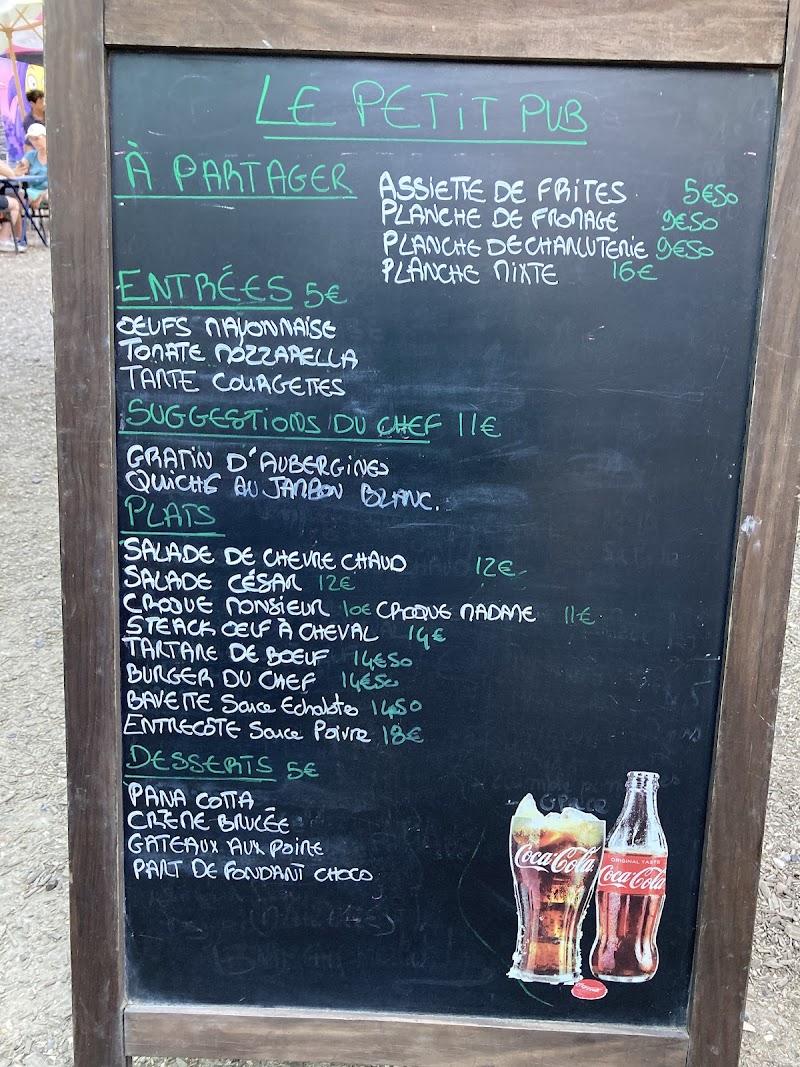 LE PETIT PUB
À PARTAGER
ASSIETTE DE FRITES 5€50
PLANCHE DE FROMAGE 9€50
PLANCHE DE CHARCUTERIE 9€50
PLANCHE MIXTE 16€
ENTRÉES 5€
OEUFS MAYONNAISE
TOMATE MOZZARELLA
TARTE COURGETTES
SUGGESTIONS DU CHEF 11€
GRATIN D'AUBERGINES
QUICHE AU JAMBON BLANC.
PLATS
SALADE DE CHEVRE CHAUD 12€
SALADE CÉSAR 12€
CROQUE MONSIEUR 10€ CROQUE MADAME 11€
STEACK OEUF À CHEVAL 14€
TARTARE DE BOEUF 14€50
BURGER DU CHEF 14€50
BAVETTE Sauce Echalotes 14,50
ENTRECÔTE Sauce Poivre 18€
DESSERTS 5€
PANA COTTA
CRÈME BRULÉE
GATEAUX AUX POIRE
PART DE FONDANT CHOCO
Coca-Cola
ORIGINAL TASTE
Coca-Cola